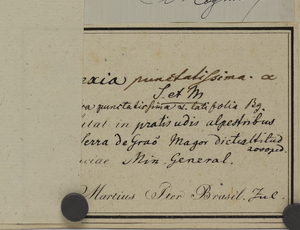 exia punctatissima. α
S. et M
a punctatissima α. latifolia Bg.
itat in pratis udis alpestribus
Serra de Graõ Magor dictis altitud
ciae Min. General.
Martius Iter Brasil. Jul.